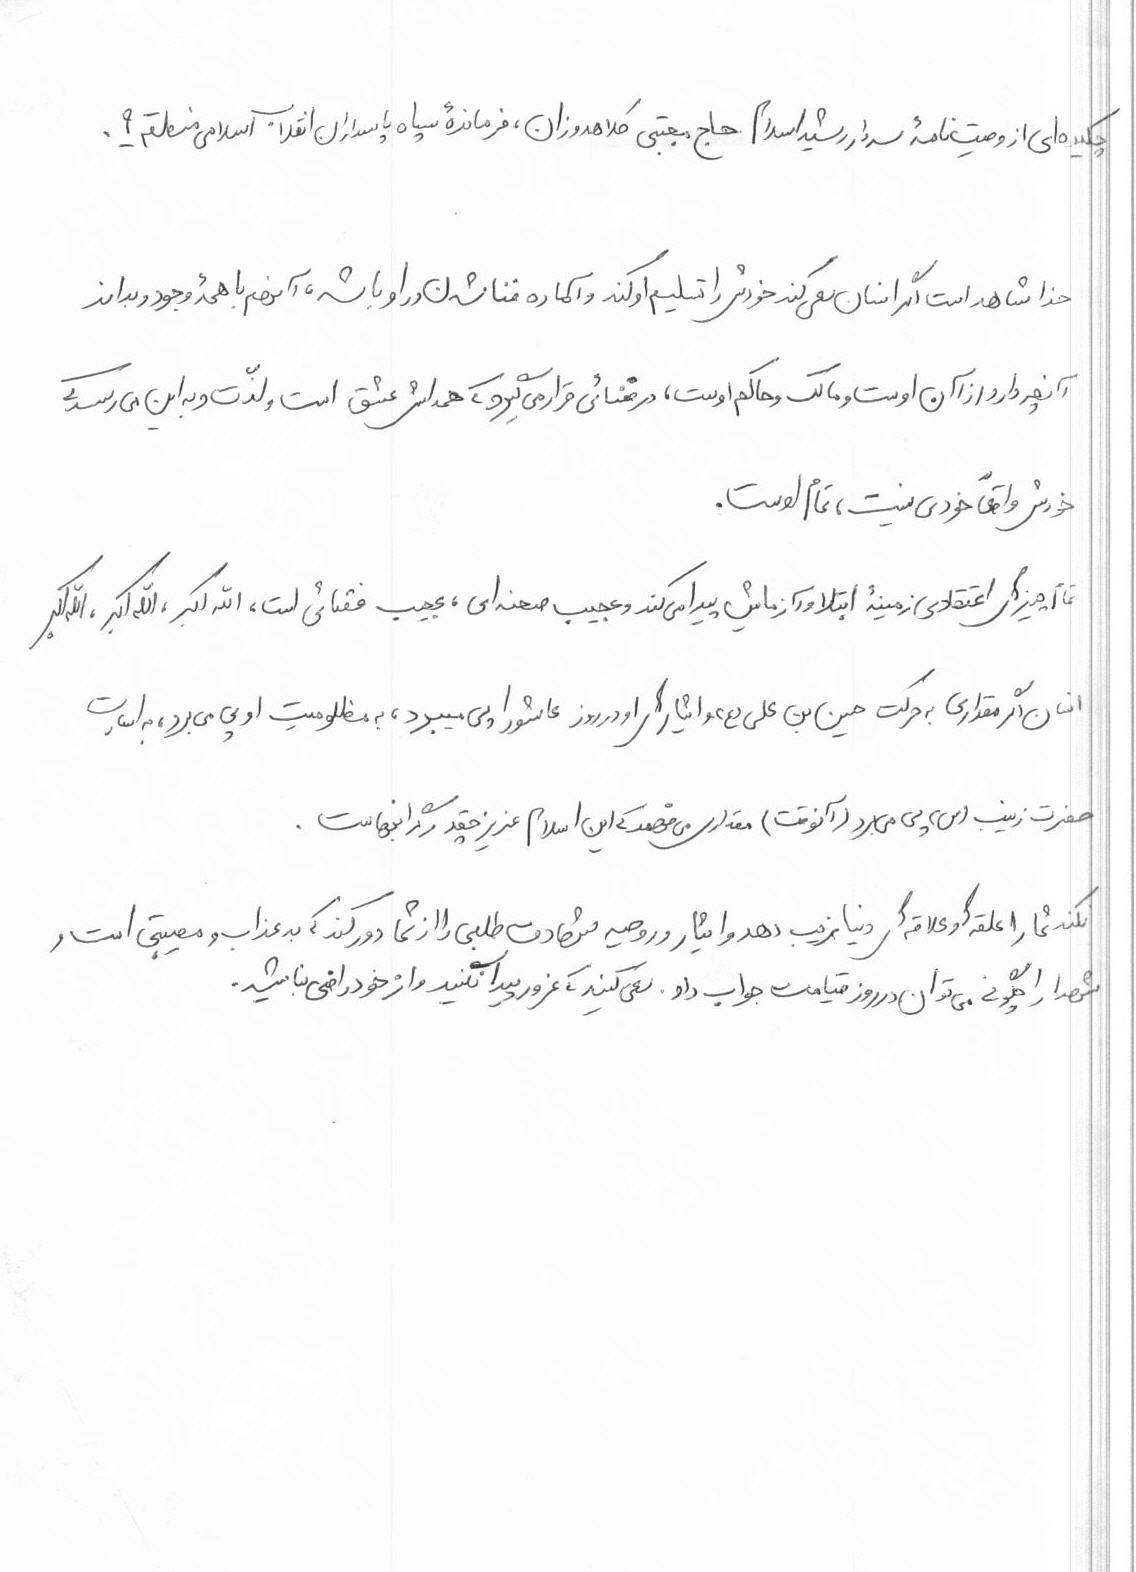 چکیده‌ای از وصیت‌نامهٔ سردار رشید اسلام حاج مجتبی کلاهدوزان، فرماندهٔ سپاه پاسداران انقلاب اسلامی منطقه ۹.
خدا شاهد است اگر انسان سعی کند خودش را تسلیم او کند و آماده فنا شدن در او باشد، آنهم با همهٔ وجود و بداند
آنچه دارد از آن اوست و مالک و حاکم اوست، در فضائی قرار می‌گیرد که همه‌اش عشق است و لذّت و به این می‌رسد که
خودش واقعاً خودی نیست، تمام اوست.
تمام چیزهای اعتقادی زمینهٔ ابتلا و آزمایش پیدا می‌کند و عجیب صحنه‌ای، عجیب فضائی است، الله اکبر، الله اکبر، الله اکبر
انسان اگر مقداری به حرکت حسین بن علی (ع) و ایثارهای او در روز عاشورا پی میبرد، به مظلومیت او پی می‌برد، به اسارت
حضرت زینب (س) پی می‌برد (آنوقت) مقداری می‌فهمد که این اسلام عزیز چقدر گرانبهاست.
نکند شما را علقه‌ها و علاقه‌های دنیا فریب دهد و ایثار و روحیه شهادت طلبی را از شما دور کند که بد عذاب و مصیبتی است و
شهدا را چگونه می‌توان در روز قیامت جواب داد. سعی کنید که غرور پیدا نکنید و از خود راضی نباشید.